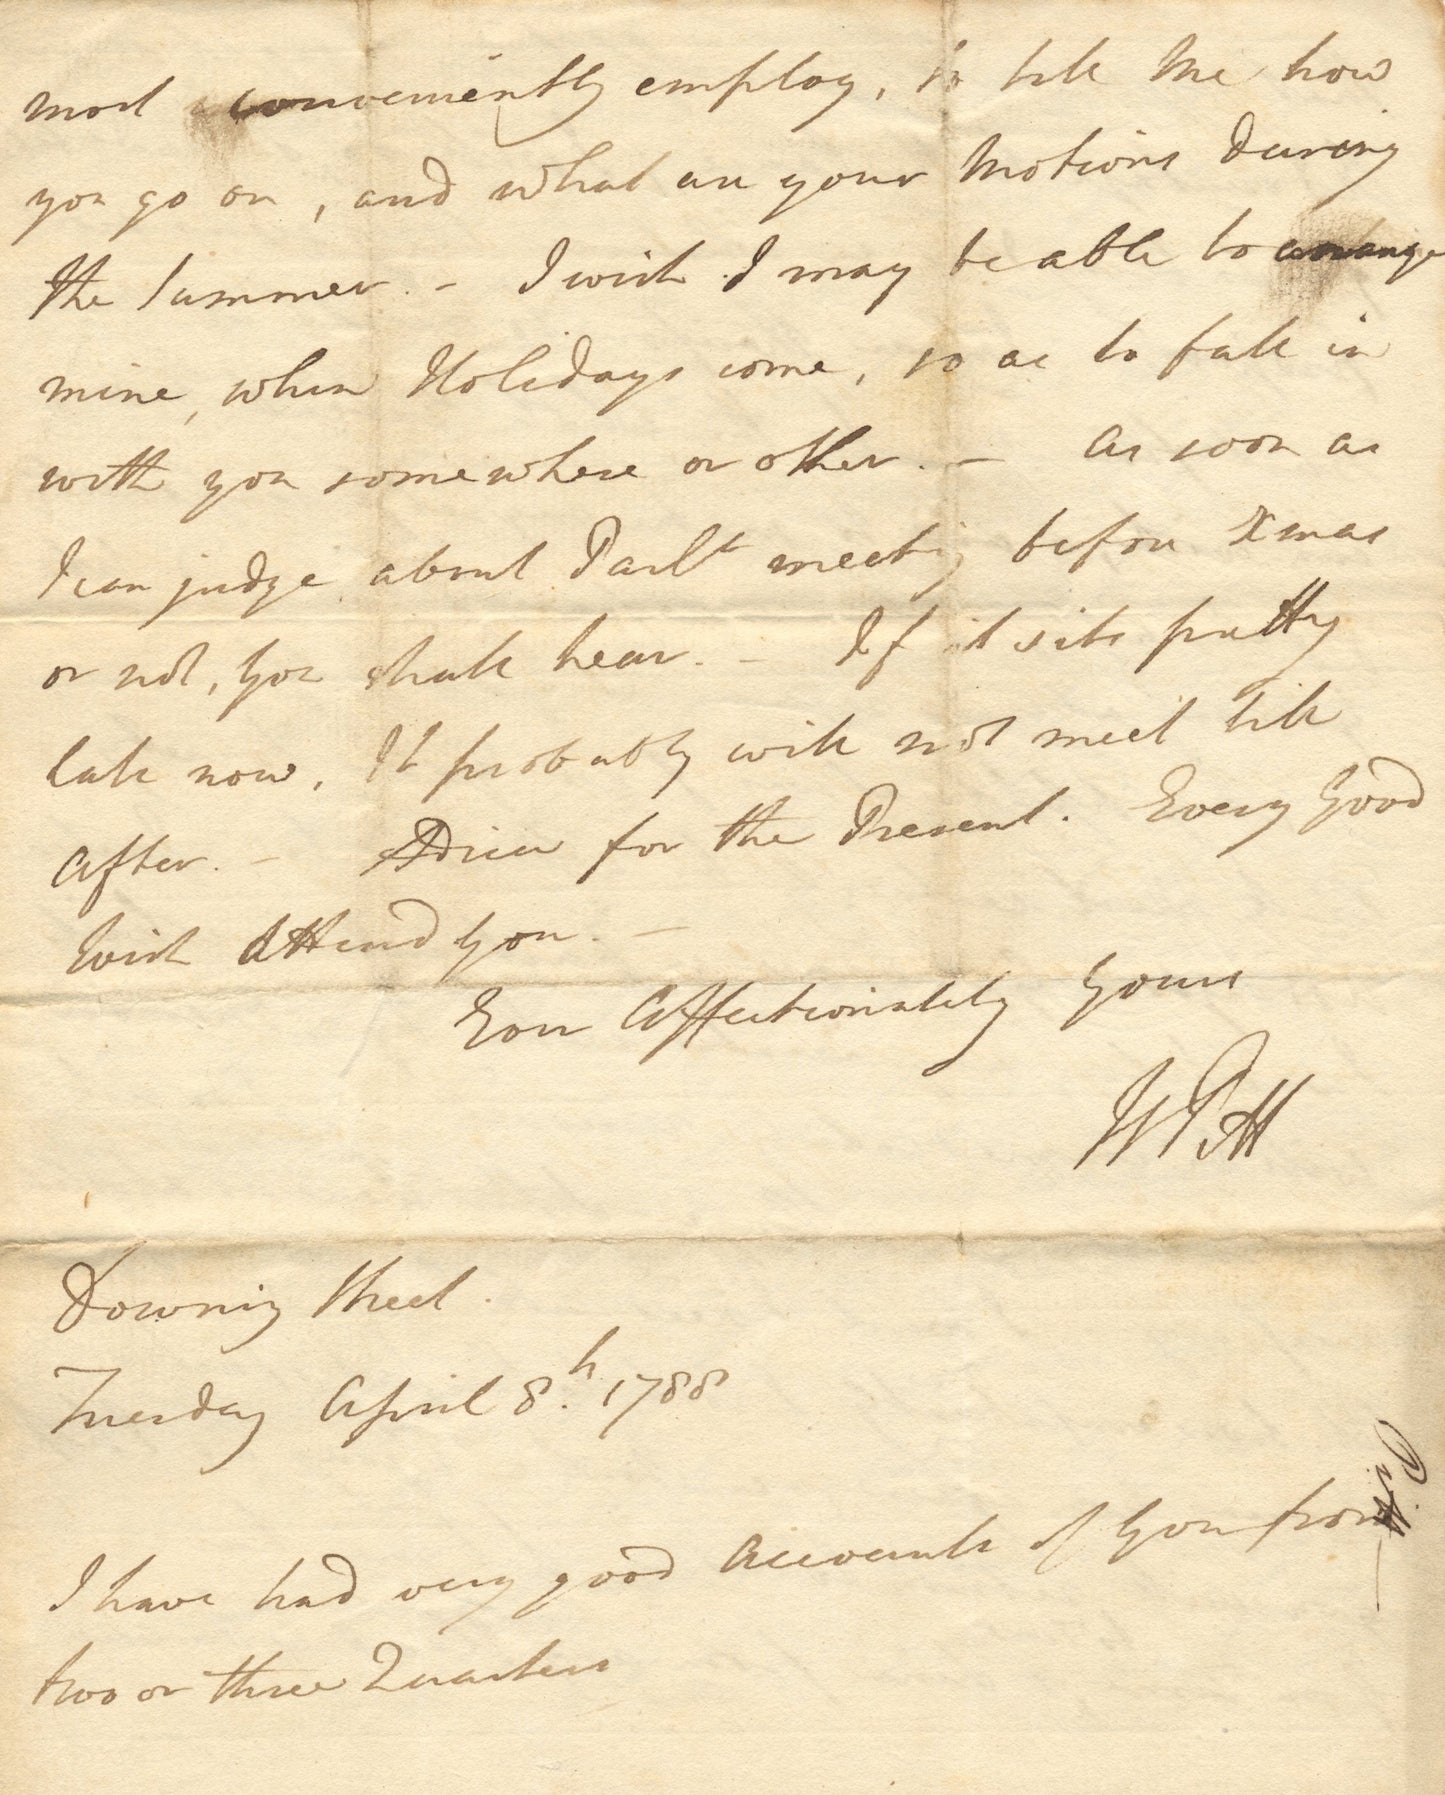 most conveniently employ, to tell Me how
you go on, and what are your Motions during
the Summer. - I wish I may be able to arrange
mine, when Holidays come, so as to fall in
with you somewhere or other. - As soon as
I can judge about Parlt meeting before Xmas
or not, You shall hear. - If it sits pretty
late now, It probably will not meet till
After. - Adieu for the Present. Every Good
Wish Attend You. -
Ever Affectionately Yours
W Pitt
Downing Street.
Tuesday April 8.h 1788
I have had very good Accounts of You from
two or three Quarters
Pitt